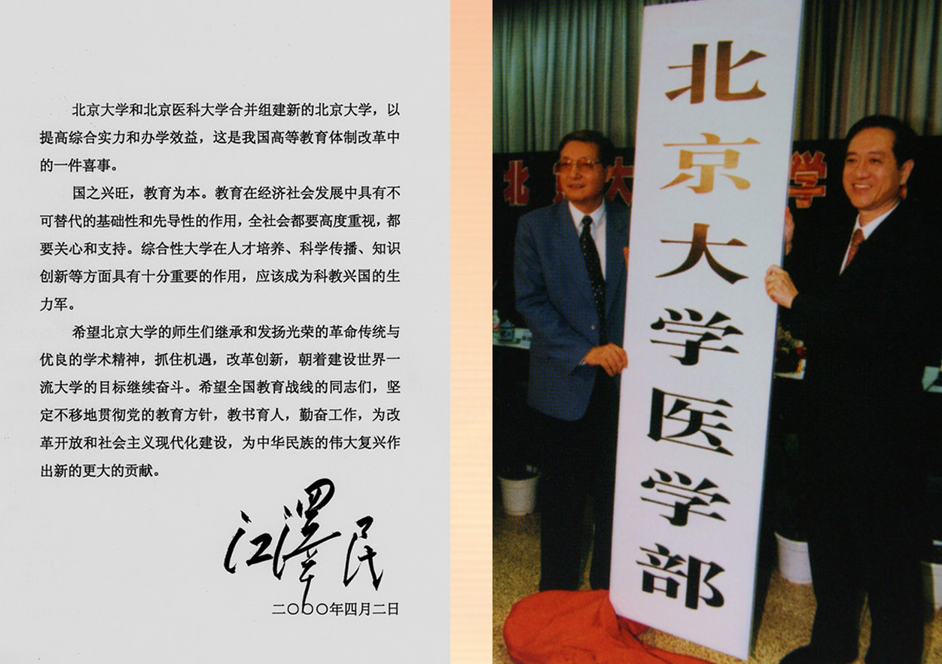 北京大学和北京医科大学合并组建新的北京大学，以
提高综合实力和办学效益，这是我国高等教育体制改革中
的一件喜事。
国之兴旺，教育为本。教育在经济社会发展中具有不
可替代的基础性和先导性的作用，全社会都要高度重视，都
要关心和支持。综合性大学在人才培养、科学传播、知识
创新等方面具有十分重要的作用，应该成为科教兴国的生
力军。
希望北京大学的师生们继承和发扬光荣的革命传统与
优良的学术精神，抓住机遇，改革创新，朝着建设世界一
流大学的目标继续奋斗。希望全国教育战线的同志们，坚
定不移地贯彻党的教育方针，教书育人，勤奋工作，为改
革开放和社会主义现代化建设，为中华民族的伟大复兴作
出新的更大的贡献。
江澤民
二〇〇〇年四月二日
北京大学医学部
北京大
学